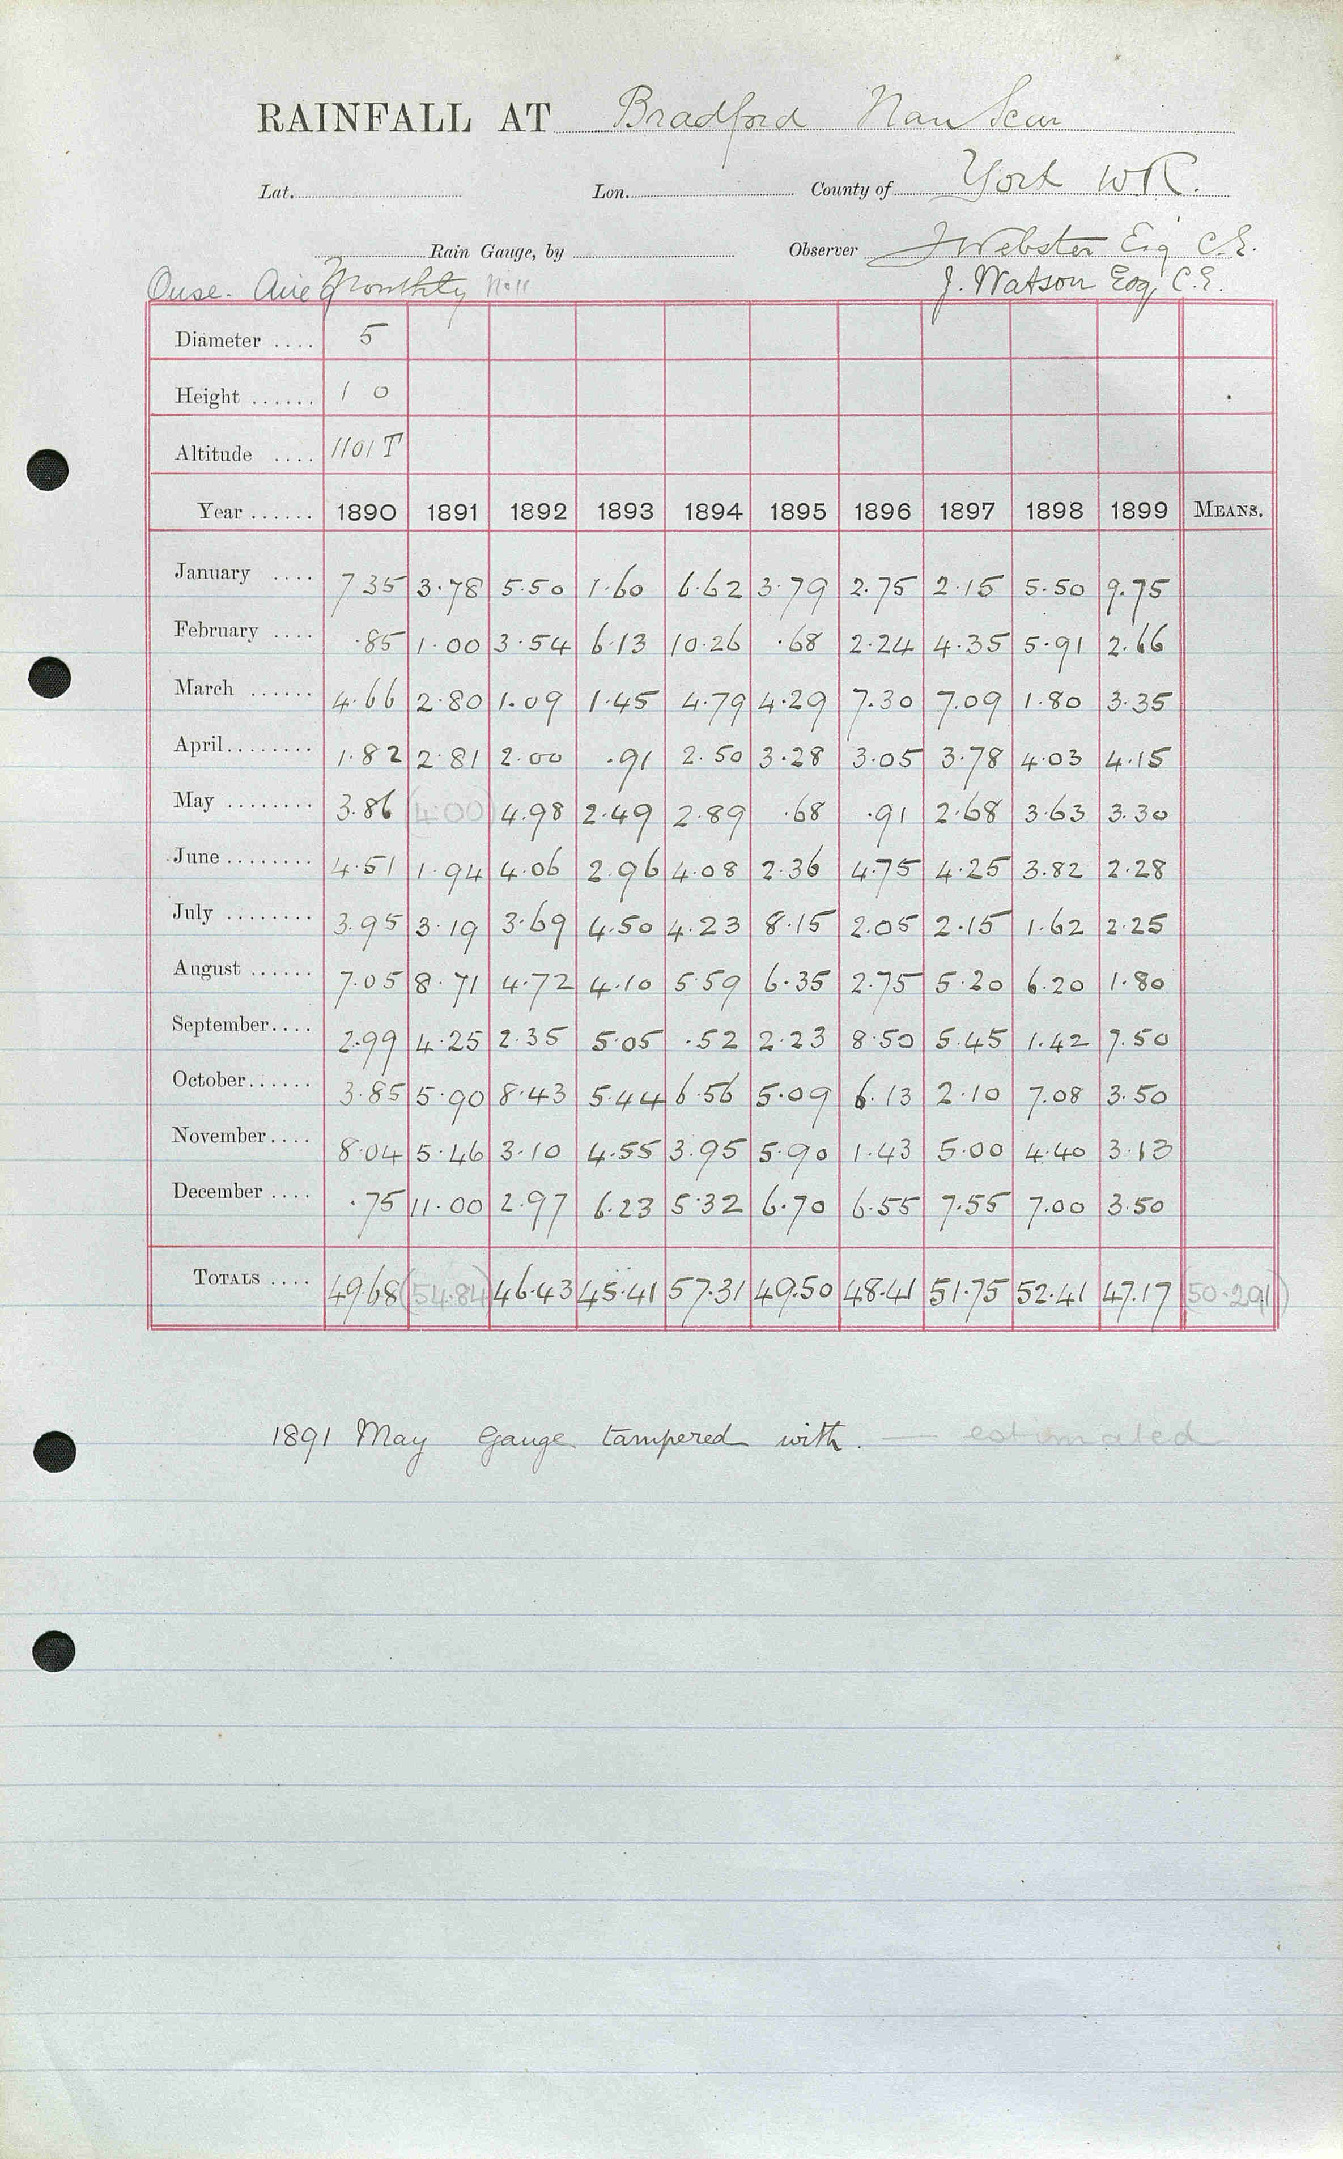 RAINFALL AT Bradford Nan Scar
Lat. Lon. County of York W R.
Rain Gauge, by Observer J Webster Esq C.E.
Ouse. Aire Monthly No 11 J. Watson Esq, C.E.
Diameter .... 5
Height ...... 1 0
Altitude .... 1101 T
Year ...... 1890 1891 1892 1893 1894 1895 1896 1897 1898 1899 MEANS.
January .... 7.35 3.78 5.50 1.60 6.62 3.79 2.75 2.15 5.50 9.75
February .... .85 1.00 3.54 6.13 10.26 .68 2.24 4.35 5.91 2.66
March ...... 4.66 2.80 1.09 1.45 4.79 4.29 7.30 7.09 1.80 3.35
April........ 1.82 2.81 2.00 .91 2.50 3.28 3.05 3.78 4.03 4.15
May ........ 3.86 (4.00) 4.98 2.49 2.89 .68 .91 2.68 3.63 3.30
June ........ 4.51 1.94 4.06 2.96 4.08 2.36 4.75 4.25 3.82 2.28
July ........ 3.95 3.19 3.69 4.50 4.23 8.15 2.05 2.15 1.62 2.25
August ...... 7.05 8.71 4.72 4.10 5.59 6.35 2.75 5.20 6.20 1.80
September.... 2.99 4.25 2.35 5.05 .52 2.23 8.50 5.45 1.42 7.50
October...... 3.85 5.90 8.43 5.44 6.56 5.09 6.13 2.10 7.08 3.50
November.... 8.04 5.46 3.10 4.55 3.95 5.90 1.43 5.00 4.40 3.13
December .... .75 11.00 2.97 6.23 5.32 6.70 6.55 7.55 7.00 3.50
TOTALS .... 49.68 (54.84) 46.43 45.41 57.31 49.50 48.41 51.75 52.41 47.17 (50.291)
1891 May Gauge tampered with. — estimated